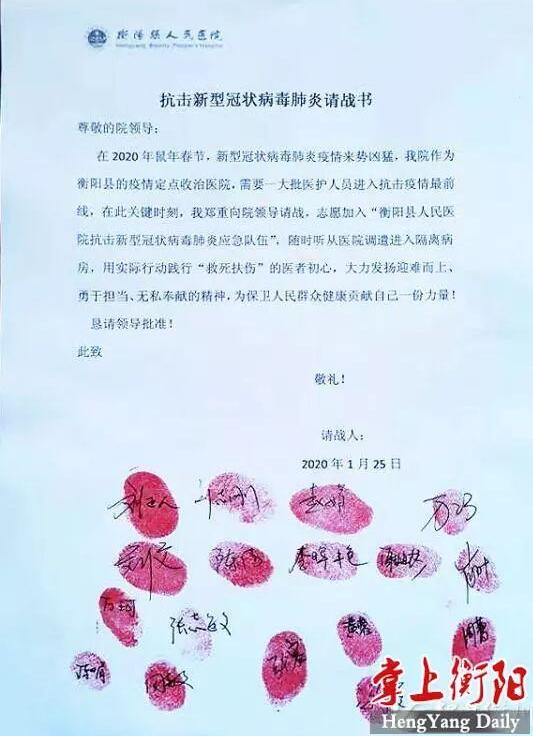 衡阳县人民医院
抗击新型冠状病毒肺炎请战书
尊敬的院领导：
在 2020 年鼠年春节，新型冠状病毒肺炎疫情来势凶猛，我院作为
衡阳县的疫情定点收治医院，需要一大批医护人员进入抗击疫情最前
线，在此关键时刻，我郑重向院领导请战，志愿加入“衡阳县人民医
院抗击新型冠状病毒肺炎应急队伍”，随时听从医院调遣进入隔离病
房，用实际行动践行“救死扶伤”的医者初心，大力发扬迎难而上、
勇于担当、无私奉献的精神，为保卫人民群众健康贡献自己一份力量！
恳请领导批准！
此致
敬礼！
请战人：
2020 年 1 月 25 日
张志敏
掌上衡阳
HengYang Daily